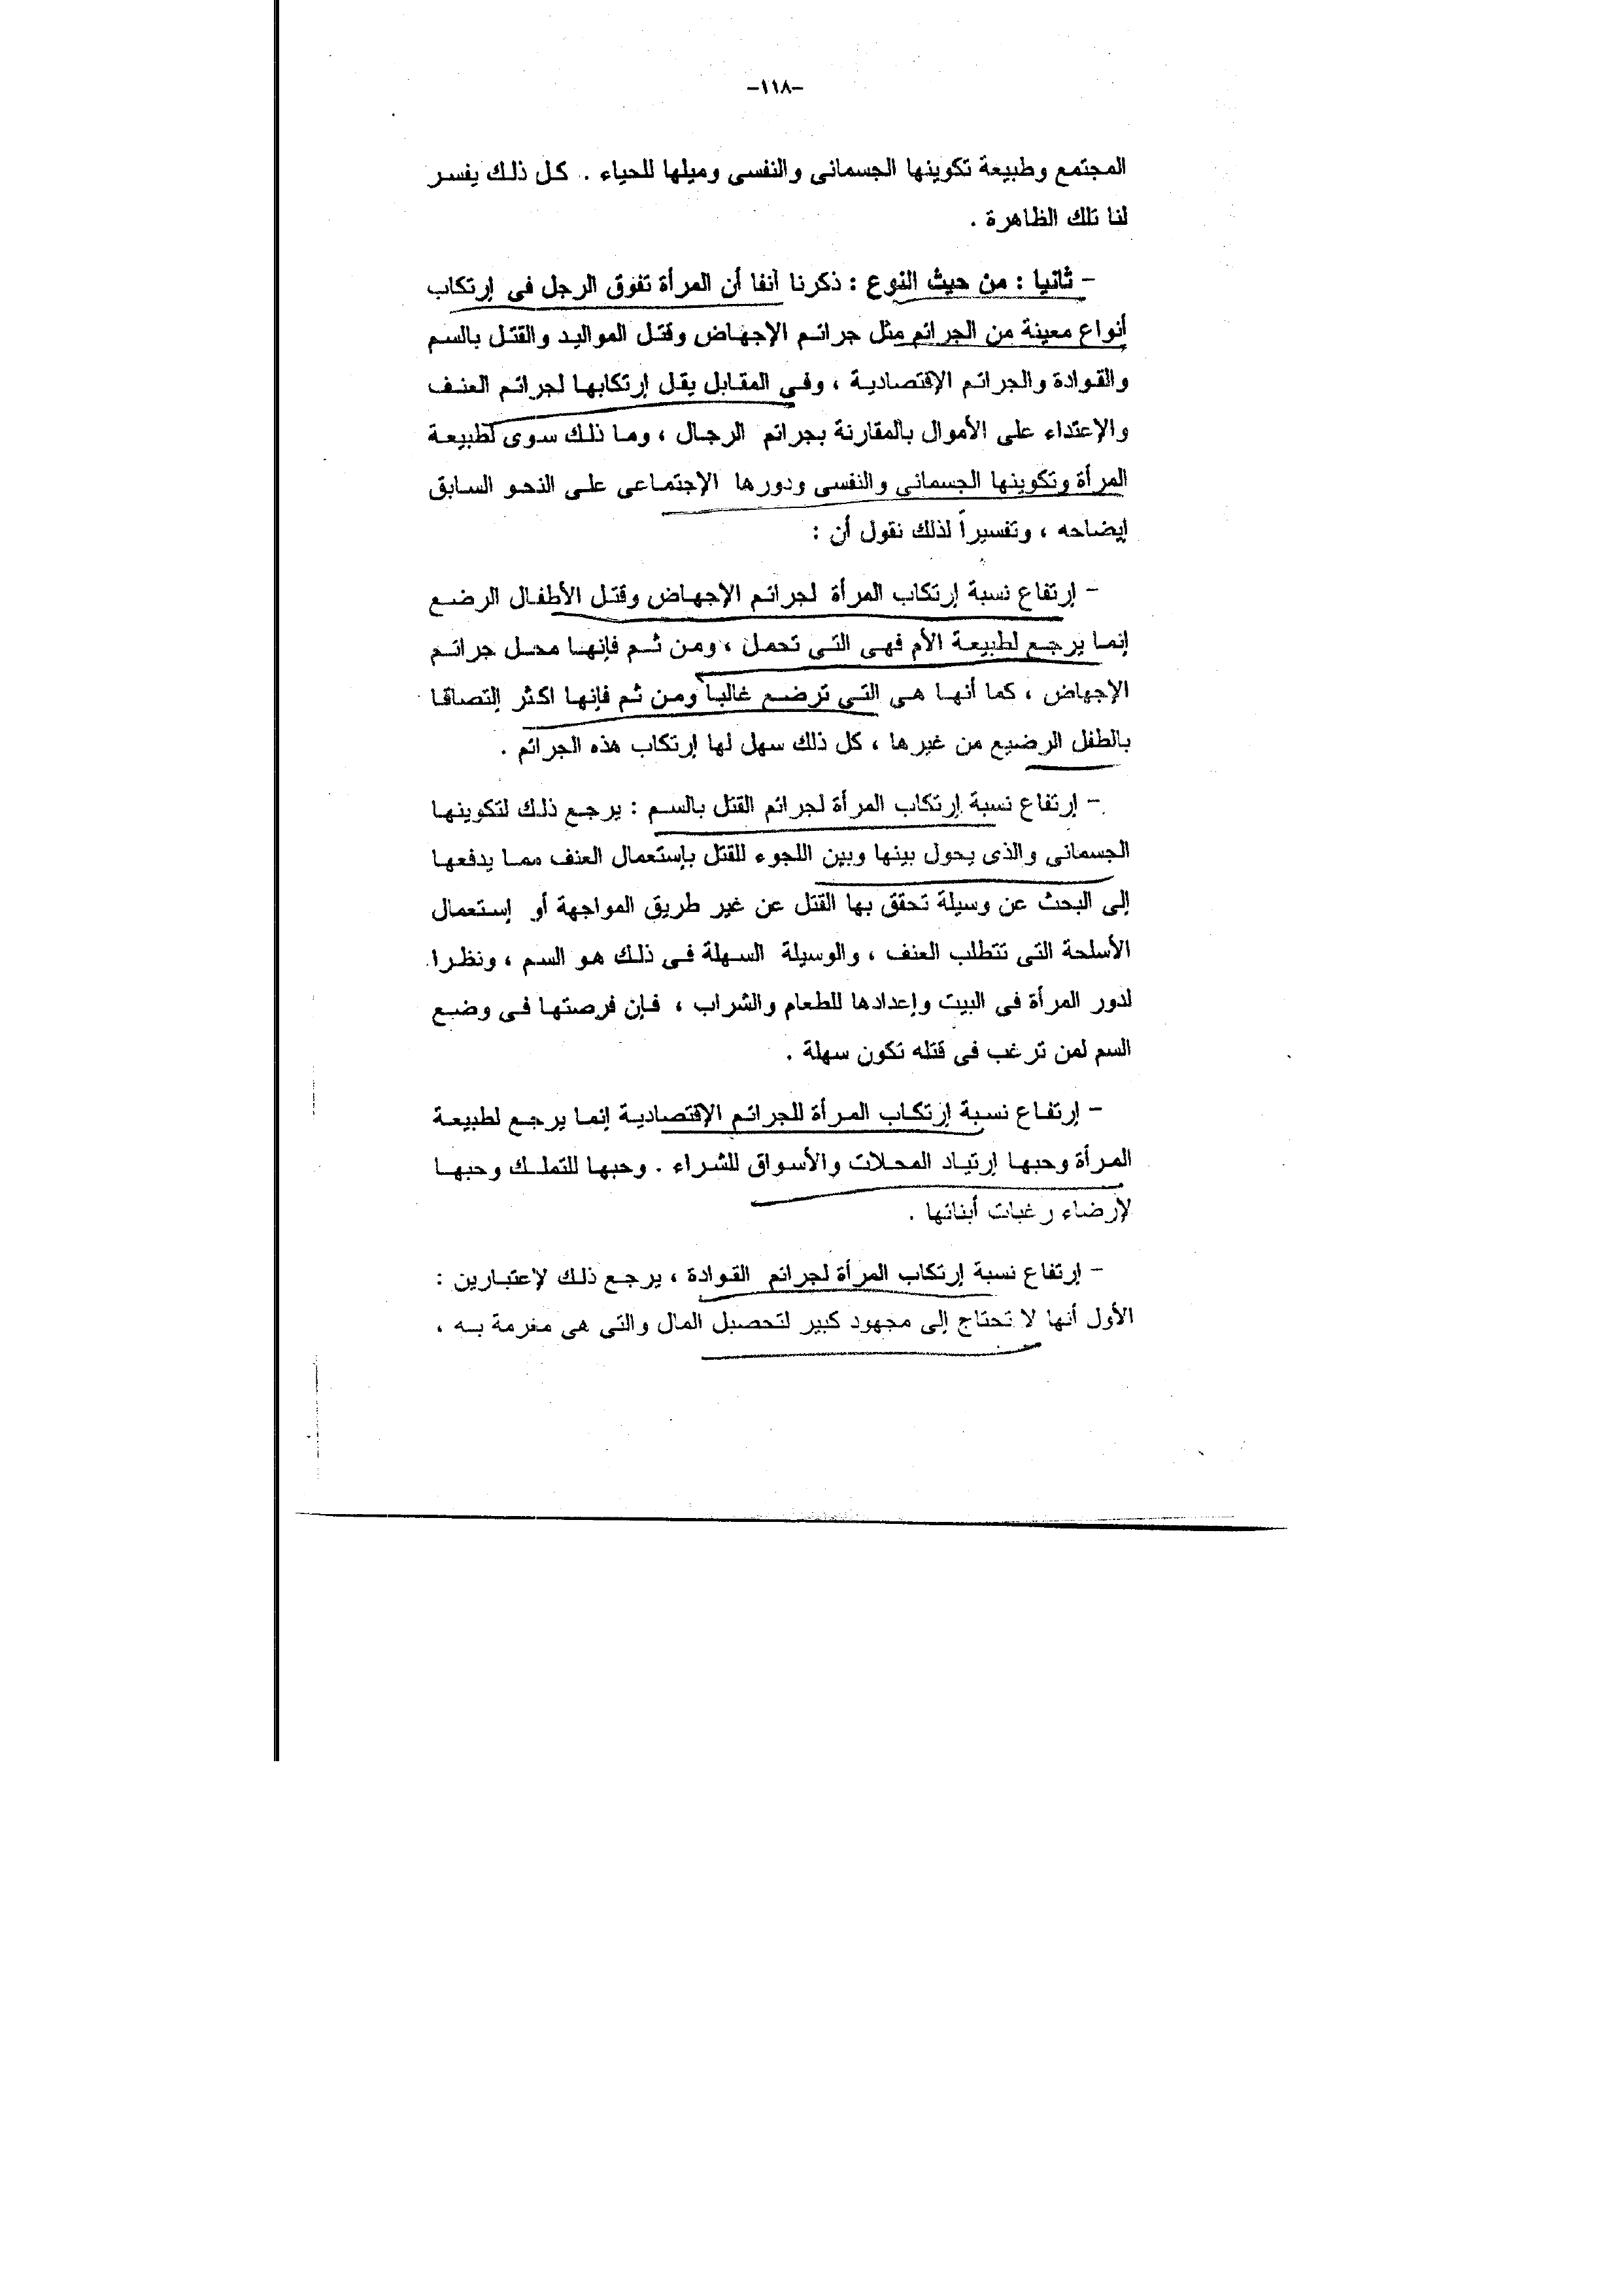 -١١٨-
المجتمع وطبيعة تكوينها الجسمانى والنفسى وميلها للحياء . كل ذلك يفسر
لنا تلك الظاهرة .
- ثانيا : من حيث النوع : ذكرنا آنفا أن المرأة تفوق الرجل فى إرتكاب
أنواع معينة من الجرائم مثل جرائم الإجهاض وقتل المواليد والقتل بالسم
والقوادة والجرائم الإقتصادية ، وفى المقابل يقل إرتكابها لجرائم العنف
والإعتداء على الأموال بالمقارنة بجرائم الرجال ، وما ذلك سوى لطبيعة
المرأة وتكوينها الجسمانى والنفسى ودورها الإجتماعى على النحو السابق
إيضاحه ، وتفسيراً لذلك نقول أن :
- إرتفاع نسبة إرتكاب المرأة لجرائم الإجهاض وقتل الأطفال الرضع
إنما يرجع لطبيعة الأم فهى التى تحمل ، ومن ثم فإنها محل جرائم
الإجهاض ، كما أنها هى التى ترضع غالباً ومن ثم فإنها اكثر إلتصاقا
بالطفل الرضيع من غيرها ، كل ذلك سهل لها إرتكاب هذه الجرائم .
- إرتفاع نسبة إرتكاب المرأة لجرائم القتل بالسم : يرجع ذلك لتكوينها
الجسمانى والذى يحول بينها وبين اللجوء للقتل بإستعمال العنف مما يدفعها
إلى البحث عن وسيلة تحقق بها القتل عن غير طريق المواجهة أو إستعمال
الأسلحة التى تتطلب العنف ، والوسيلة السهلة فى ذلك هو السم ، ونظرا
لدور المرأة فى البيت وإعدادها للطعام والشراب ، فإن فرصتها فى وضع
السم لمن ترغب فى قتله تكون سهلة .
- إرتفاع نسبة إرتكاب المرأة للجرائم الإقتصادية إنما يرجع لطبيعة
المرأة وحبها إرتياد المحلات والأسواق للشراء . وحبها للتملك وحبها
لإرضاء رغبات أبنائها .
- إرتفاع نسبة إرتكاب المرأة لجرائم القوادة ، يرجع ذلك لإعتبارين :
الأول أنها لا تحتاج إلى مجهود كبير لتحصيل المال والتى هى مغرمة به ،